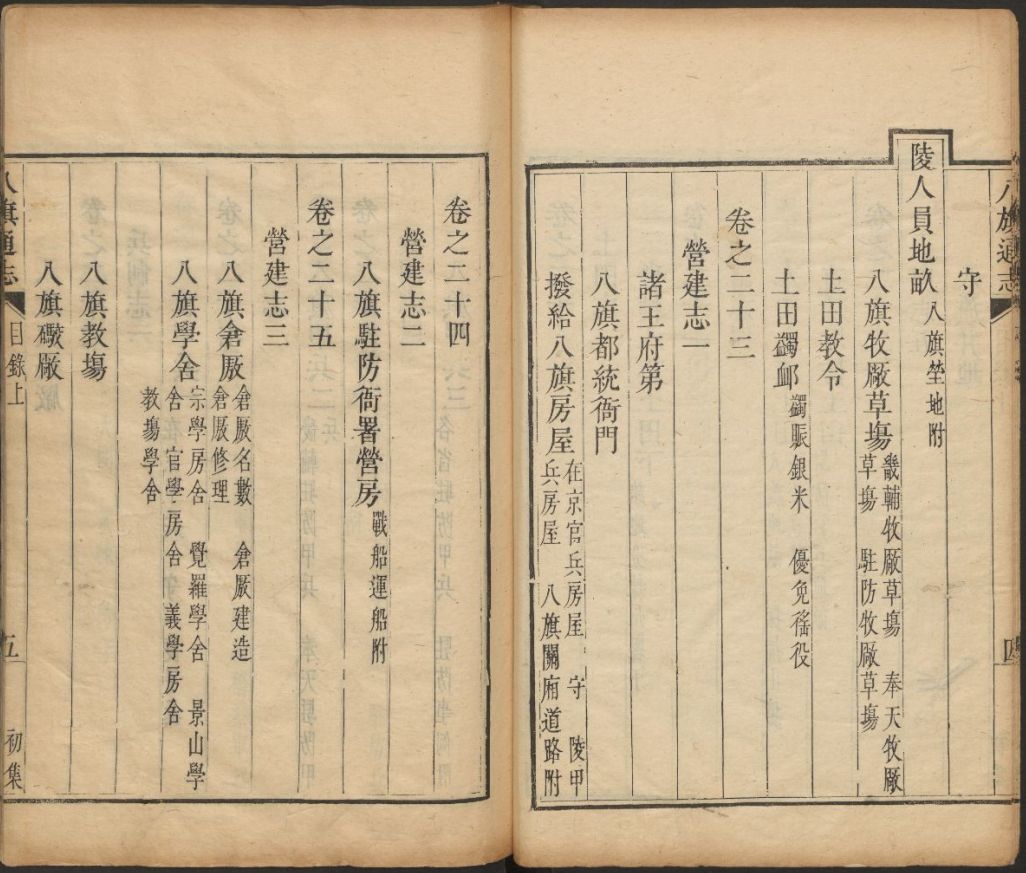 八旗通志
四
守
陵人員地畝 八旗塋地附
八旗牧廠草場 畿輔牧廠草場 奉天牧廠
草場 駐防牧廠草場
土田教令
土田蠲卹 蠲賑銀米 優免徭役
卷之二十三
營建志一
諸王府第
八旗都統衙門
撥給八旗房屋 在京官兵房屋 守 陵甲
兵房屋 八旗關廂道路附
卷之二十四
營建志二
八旗駐防衙署營房 戰船運船附
卷之二十五
營建志三
八旗倉厫 倉厫名數 倉厫建造
倉厫修理
八旗學舍 宗學房舍 覺羅學舍 景山學
舍 官學房舍 義學房舍
教場學舍
八旗教塲
八旗礮廠
八旗通志 目錄上 五 初集